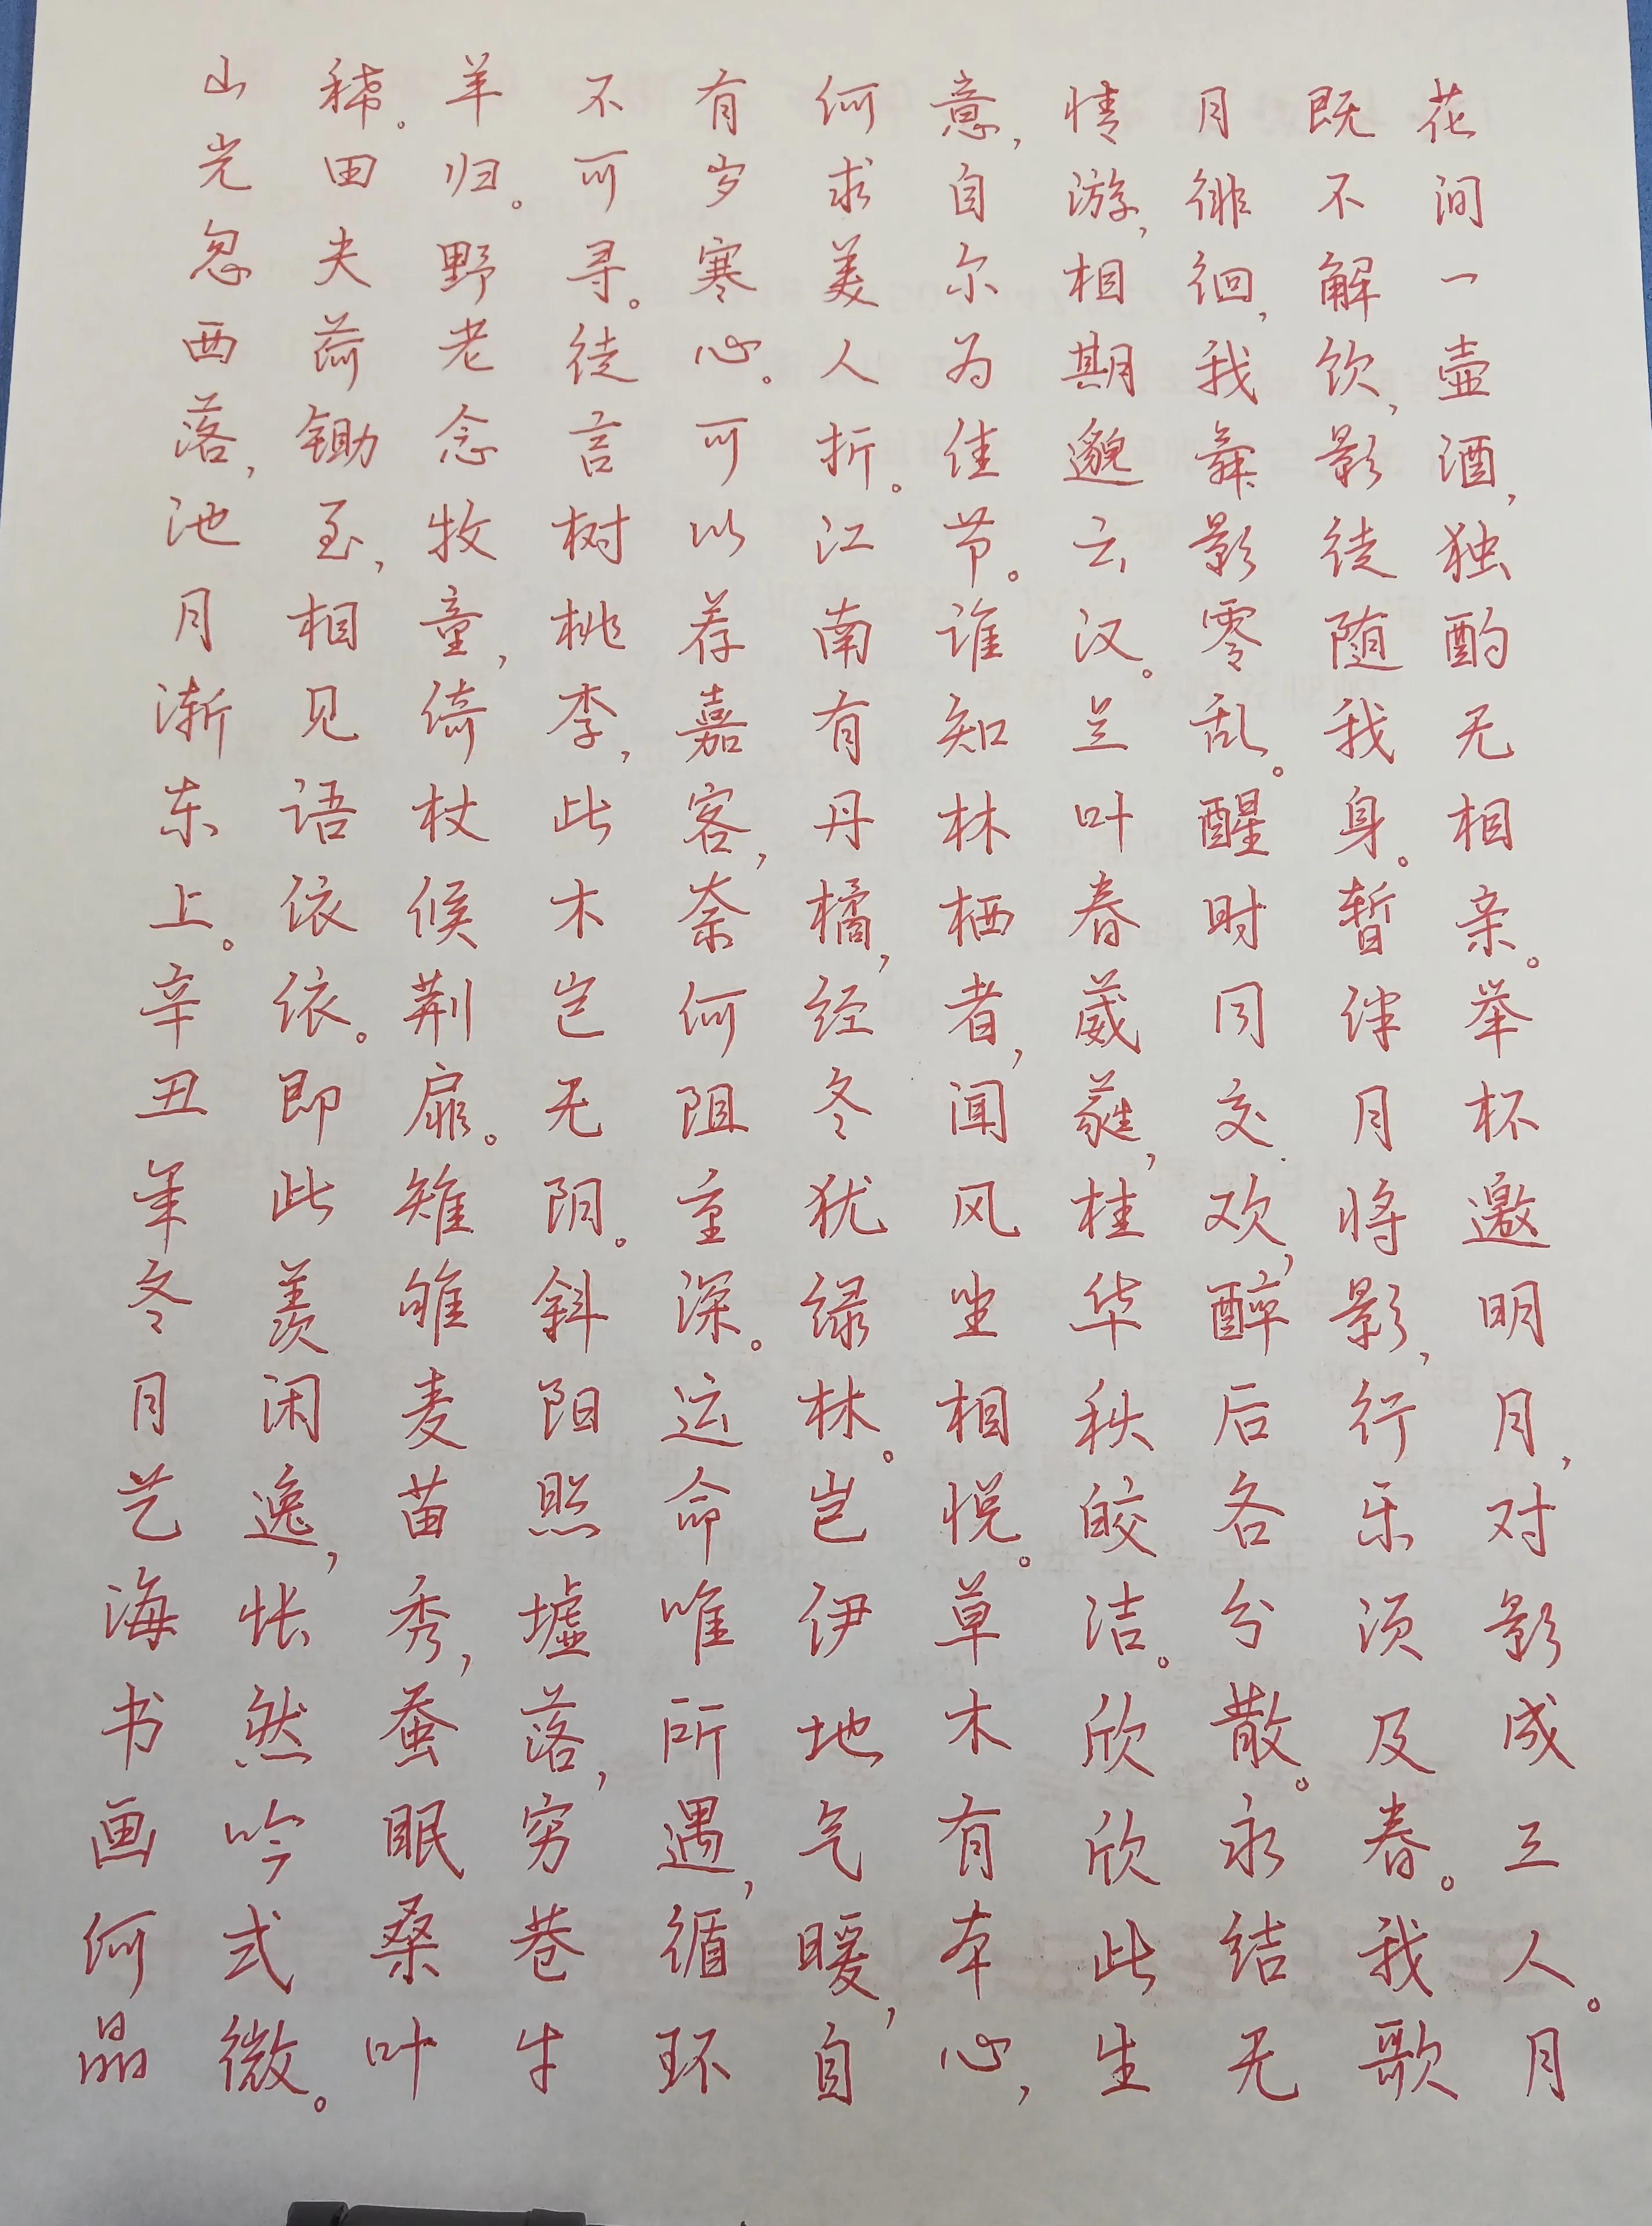 花间一壶酒,独酌无相亲。举杯邀明月,对影成三人。月
既不解饮,影徒随我身。暂伴月将影,行乐须及春。我歌
月徘徊,我舞影零乱。醒时同交欢,醉后各分散。永结无
情游,相期邈云汉。兰叶春葳蕤,桂华秋皎洁。欣欣此生
意,自尔为佳节。谁知林栖者,闻风坐相悦。草木有本心,
何求美人折。江南有丹橘,经冬犹绿林。岂伊地气暖,自
有岁寒心。可以荐嘉客,奈何阻重深。运命唯所遇,循环
不可寻。徒言树桃李,此木岂无阴。斜阳照墟落,穷巷牛
羊归。野老念牧童,倚杖候荆扉。雉雊麦苗秀,蚕眠桑叶
稀。田夫荷锄至,相见语依依。即此羡闲逸,怅然吟式微。
山光忽西落,池月渐东上。辛丑年冬月艺海书画何晶